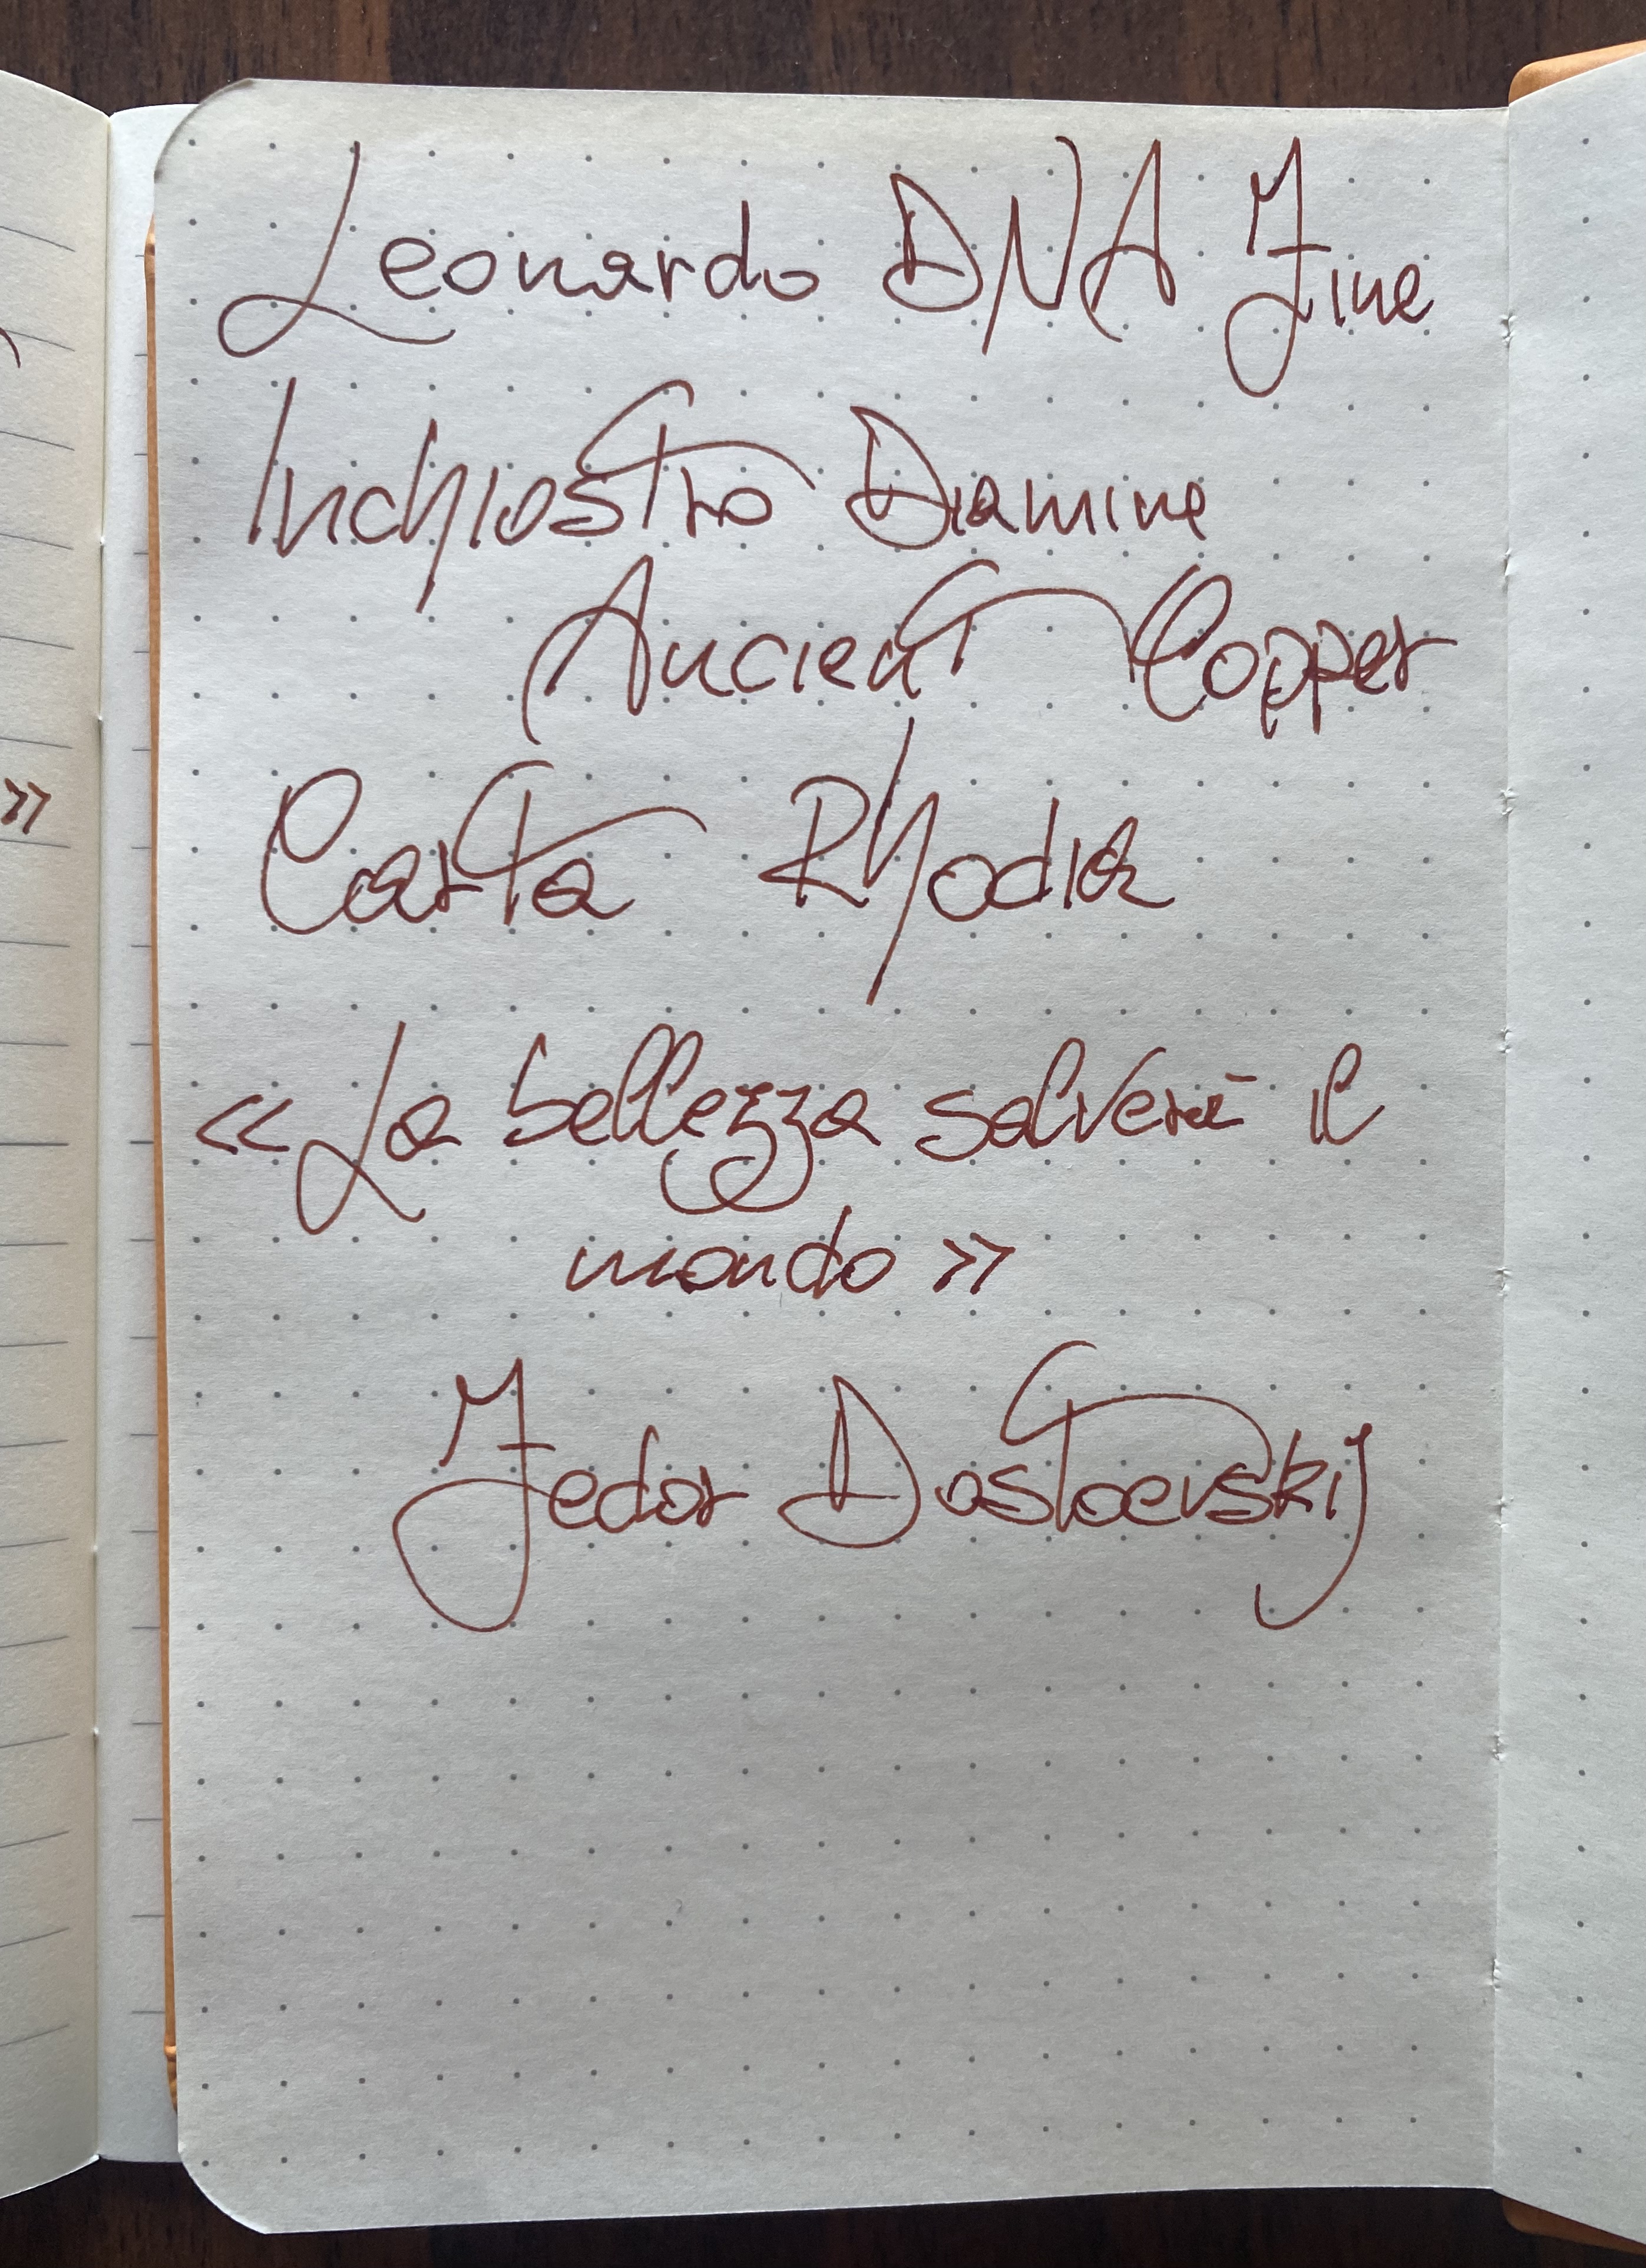 Leonardo DNA Fine
Inchiostro Diamine
Ancient Copper
Carta Rhodia
«La bellezza salverà il
mondo»
Fedor Dostoevskij
»